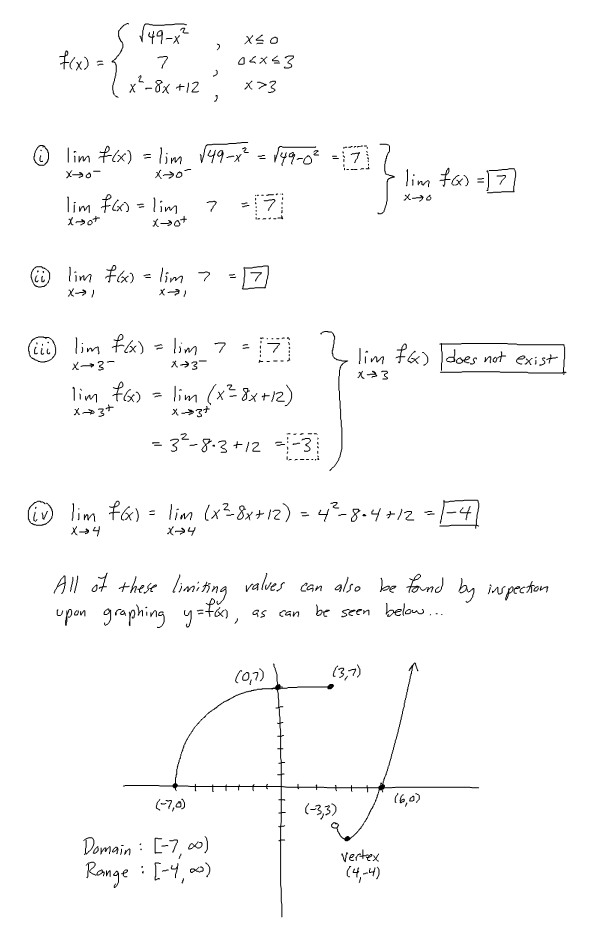 f(x) = { √(49-x²) , x≤0
7 , 0<x≤3
x²-8x+12 , x>3
(i) lim x→0⁻ f(x) = lim x→0⁻ √(49-x²) = √(49-0²) = 7
lim x→0⁺ f(x) = lim x→0⁺ 7 = 7 } lim x→0 f(x) = 7
(ii) lim x→1 f(x) = lim x→1 7 = 7
(iii) lim x→3⁻ f(x) = lim x→3⁻ 7 = 7
lim x→3⁺ f(x) = lim x→3⁺ (x²-8x+12)
= 3²-8·3+12 = -3 } lim x→3 f(x) does not exist
(iv) lim x→4 f(x) = lim x→4 (x²-8x+12) = 4²-8·4+12 = -4
All of these limiting values can also be found by inspection
upon graphing y=f(x), as can be seen below...
(0,7) (3,7)
(-7,0) (-3,3) (6,0)
Domain : [-7,∞)
Range : [-4,∞)
vertex
(4,-4)